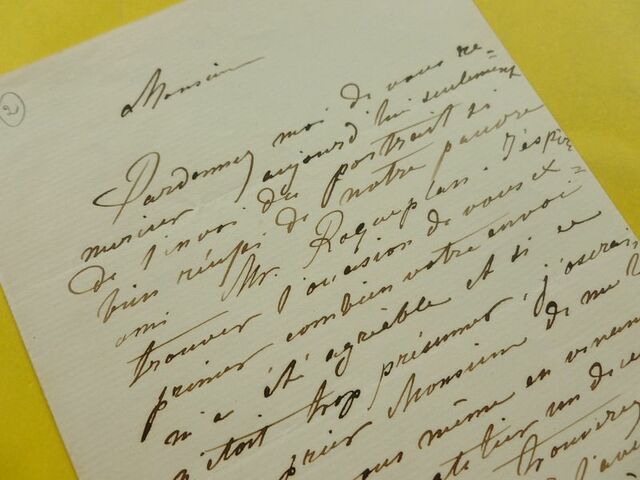 2
Monsieur
Pardonnez moi de vous re=
mercier aujourd'hui seulement
de l'envoi du portrait si
bien réussi de notre pauvre
ami Mr. Roqueplan. J'espère
trouver l'occasion de vous ex=
primer combien votre envoi
m'a été agréable et si ce
n'étoit trop présumer, j'oserais
prier Monsieur de me
vous même en venant
atelier un di
trouverez
l'av